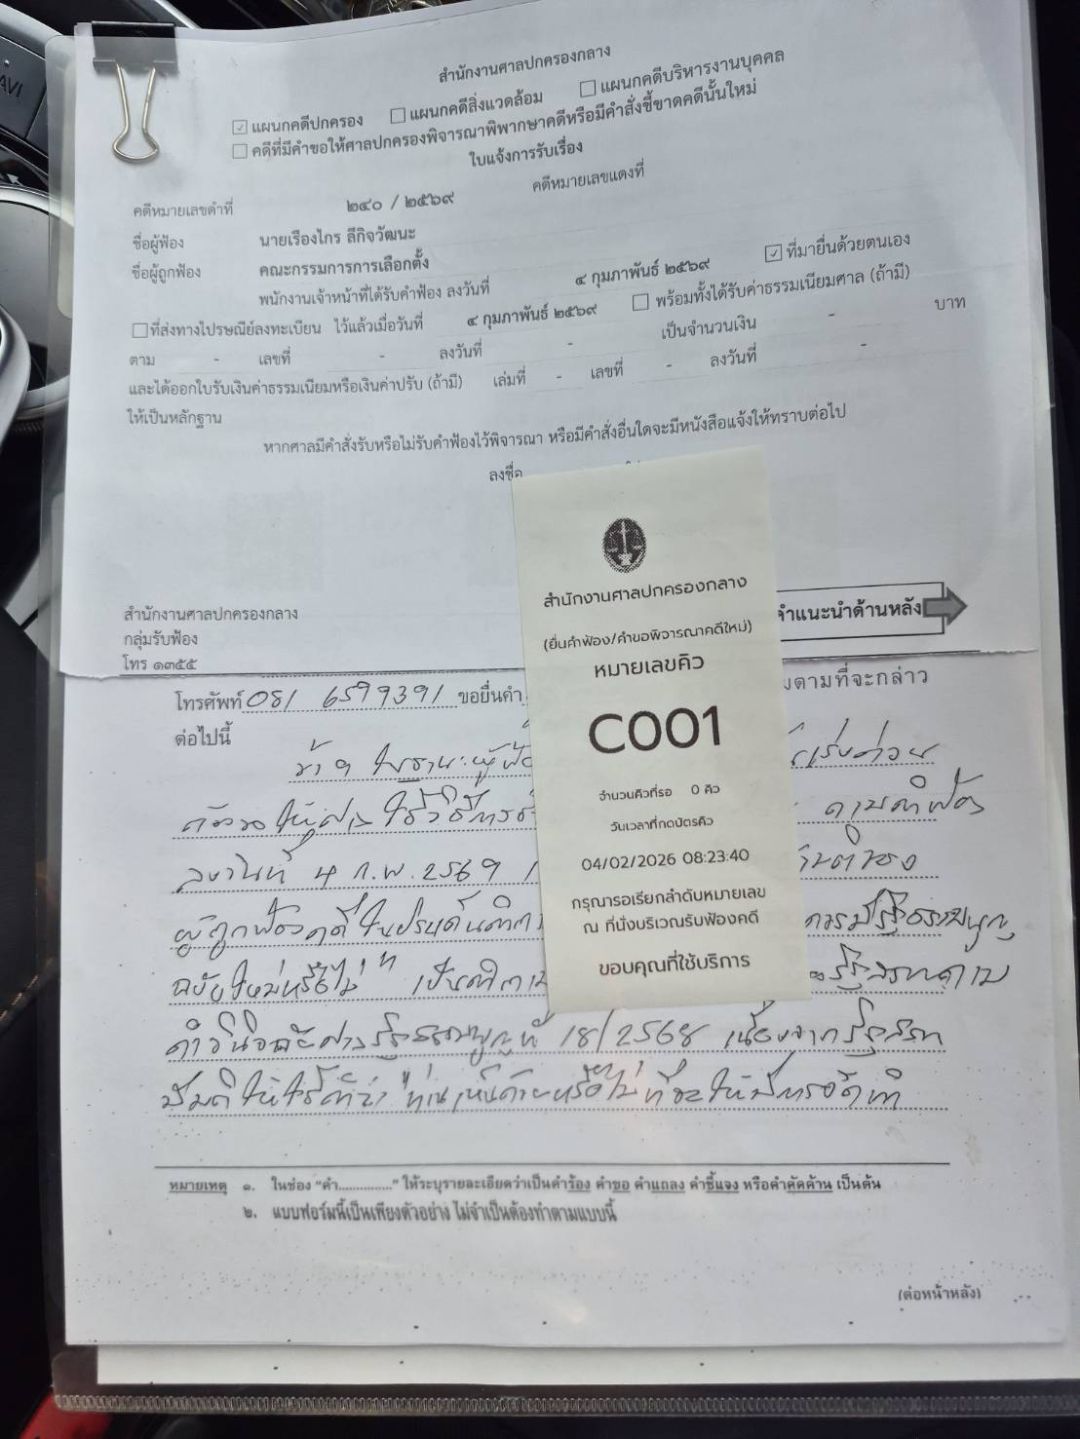 สำนักงานศาลปกครองกลาง
แผนกคดีปกครอง แผนกคดีสิ่งแวดล้อม แผนกคดีบริหารงานบุคคล
คดีที่มีคำขอให้ศาลปกครองพิจารณาพิพากษาคดีหรือมีคำสั่งชี้ขาดคดีนั้นใหม่
ใบแจ้งการรับเรื่อง
คดีหมายเลขดำที่ ๒๔๐ / ๒๕๖๙ คดีหมายเลขแดงที่
ชื่อผู้ฟ้อง นายเรืองไกร ลีกิจวัฒนะ
ชื่อผู้ถูกฟ้อง คณะกรรมการการเลือกตั้ง
พนักงานเจ้าหน้าที่ได้รับคำฟ้อง ลงวันที่ ๔ กุมภาพันธ์ ๒๕๖๙ ที่มายื่นด้วยตนเอง
ที่ส่งทางไปรษณีย์ลงทะเบียน ไว้แล้วเมื่อวันที่ ๔ กุมภาพันธ์ ๒๕๖๙ พร้อมทั้งได้รับค่าธรรมเนียมศาล (ถ้ามี)
ตาม - เลขที่ - ลงวันที่ - เป็นจำนวนเงิน - บาท
และได้ออกใบรับเงินค่าธรรมเนียมหรือเงินค่าปรับ (ถ้ามี) เล่มที่ - เลขที่ - ลงวันที่ -
ให้เป็นหลักฐาน
หากศาลมีคำสั่งรับหรือไม่รับคำฟ้องไว้พิจารณา หรือมีคำสั่งอื่นใดจะมีหนังสือแจ้งให้ทราบต่อไป
ลงชื่อ
สำนักงานศาลปกครองกลาง
กลุ่มรับฟ้อง
โทร ๑๓๕๕
คำแนะนำด้านหลัง
สำนักงานศาลปกครองกลาง
(ยื่นคำฟ้อง/คำขอพิจารณาคดีใหม่)
หมายเลขคิว
C001
จำนวนคิวที่รอ 0 คิว
วันเวลาที่กดบัตรคิว
04/02/2026 08:23:40
กรุณารอเรียกลำดับหมายเลข
ณ ที่นั่งบริเวณรับฟ้องคดี
ขอบคุณที่ใช้บริการ
โทรศัพท์ 081 6579391 ขอยื่นคำ ตามที่จะกล่าว
ต่อไปนี้
ข้าฯ ในฐานะผู้ฟ้อง เร่งด่วน
ตามคำฟ้อง
ลงวันที่ 4 ก.พ. 2569
ผู้ถูกฟ้องคดีในประเด็นคำถาม ควรมีรัฐธรรมนูญ
ฉบับใหม่หรือไม่" เป็นคำถาม รัฐสภาตาม
คำวินิจฉัยศาลรัฐธรรมนูญที่ 18/2568 เนื่องจากรัฐสภา
มีมติให้ใช้คำว่า "ท่านเห็นด้วยหรือไม่ ที่จะให้มีการจัดทำ
หมายเหตุ ๑. ในช่อง "คำ..............." ให้ระบุรายละเอียดว่าเป็นคำร้อง คำขอ คำแถลง คำชี้แจง หรือคำคัดค้าน เป็นต้น
๒. แบบฟอร์มนี้เป็นเพียงตัวอย่าง ไม่จำเป็นต้องทำตามแบบนี้
(ต่อหน้าหลัง)